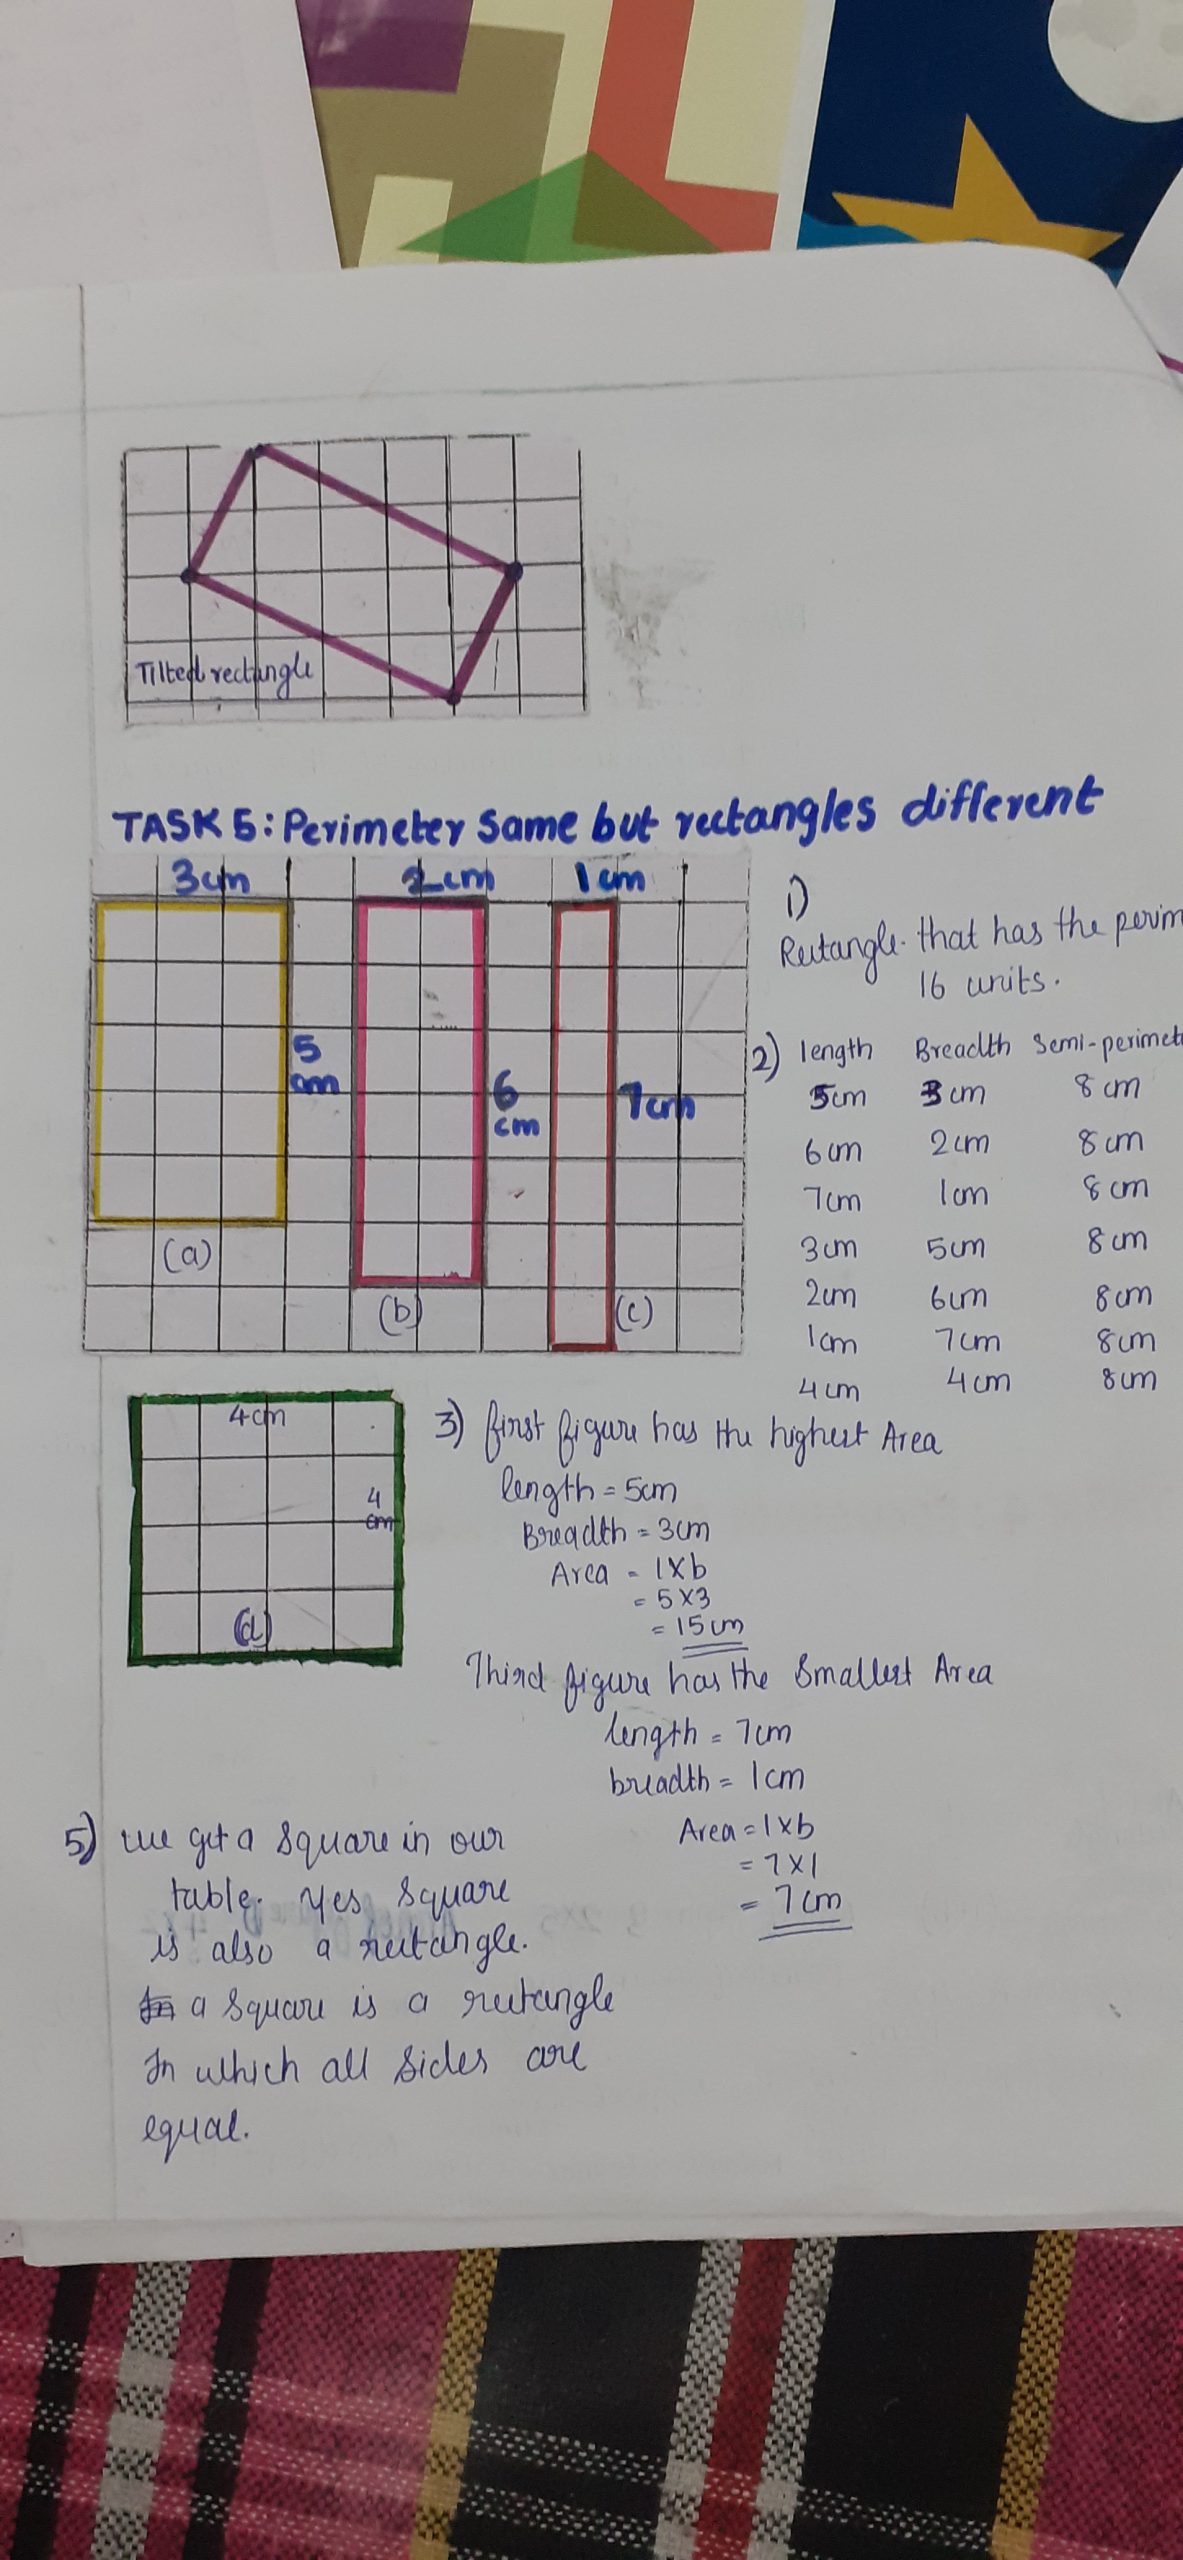 Tilted rectangle
TASK 5: Perimeter Same but rectangles different
3cm 2cm 1cm
5
cm
6
cm
7cm
(a)
(b)
(c)
1)
Rectangle that has the perim
16 units.
2) length Breadth Semi-perimet
5cm 3cm 8cm
6cm 2cm 8cm
7cm 1cm 8cm
3cm 5cm 8cm
2cm 6cm 8cm
1cm 7cm 8cm
4cm 4cm 8cm
4cm
4
cm
(d)
3) first figure has the highest Area
length = 5cm
Breadth = 3cm
Area = l×b
= 5×3
= 15cm
Third figure has the Smallest Area
length = 7cm
breadth = 1cm
Area = l×b
= 7×1
= 7cm
5) we get a Square in our
table. Yes Square
is also a rectangle.
a Square is a rectangle
In which all Sides are
equal.